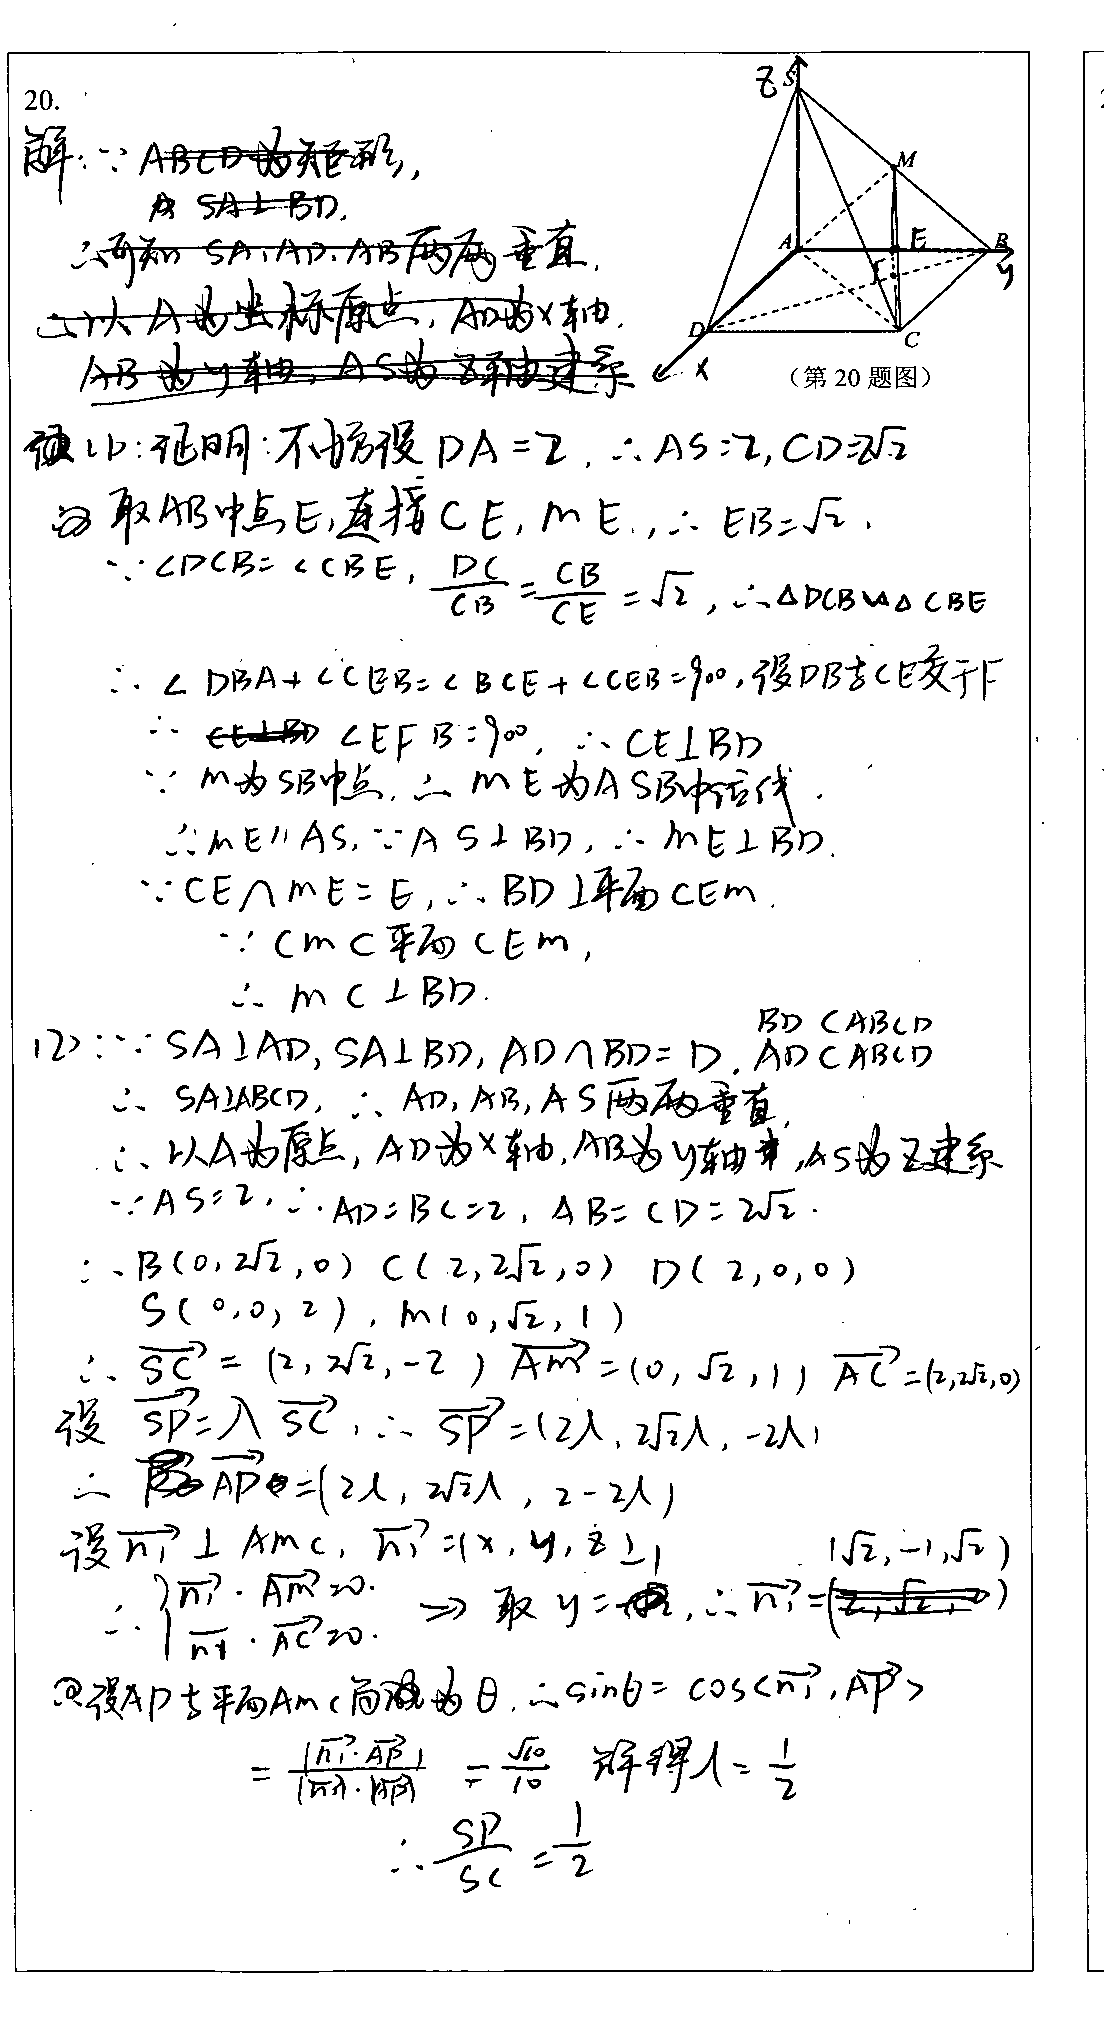 20.
解:∵ ABCD为矩形,
SA⊥BD.
∴可知 SA、AD、AB两两垂直.
∴以A为坐标原点, AD为x轴.
AB为y轴, AS为Z轴建系
Z S
M
A E B
y
F
D C
x
(第 20 题图)
(1):证明:不妨设 DA=2. ∴AS=2, CD=2√2
取AB中点E,连接CE, ME.,∴EB=√2.
∵∠DCB=∠CBE, DC/CB=CB/CE=√2, ∴△DCB∽△CBE
∴∠DBA+∠CEB=∠BCE+∠CEB=90°,设DB与CE交于F
∴ CE⊥BD ∠EFB=90°, ∴CE⊥BD
∵ M为SB中点, ∴ME为ASB中位线.
∴ME∥AS, ∵AS⊥BD, ∴ME⊥BD.
∵CE∩ME=E, ∴BD⊥平面CEM.
∵CM⊂平面CEM,
∴MC⊥BD.
BD⊂ABCD
(2):∵SA⊥AD, SA⊥BD, AD∩BD=D. AD⊂ABCD
∴SA⊥ABCD, ∴AD, AB, AS两两垂直.
∴以A为原点, AD为x轴, AB为y轴, AS为Z建系
∵AS=2, ∴AD=BC=2, AB=CD=2√2.
∴B(0,2√2,0) C(2,2√2,0) D(2,0,0)
S(0,0,2), M(0,√2,1)
∴SC→=(2,2√2,-2) AM→=(0,√2,1) AC→=(2,2√2,0)
设 SP→=λSC→, ∴SP→=(2λ,2√2λ,-2λ)
∴ AP→=(2λ,2√2λ,2-2λ)
设n₁→⊥AMC, n₁→=(x,y,z),
(√2,-1,√2)
∴{n₁→·AM→=0. ⇒ 取y= ,∴n₁→=(2,√2,0)
n₁→·AC→=0.
设AP与平面AMC角为θ,∴sinθ=cos<n₁→,AP→>
=|n₁→·AP→|/|n₁→|·|AP→| =√10/10 解得λ=1/2
∴SP/SC=1/2